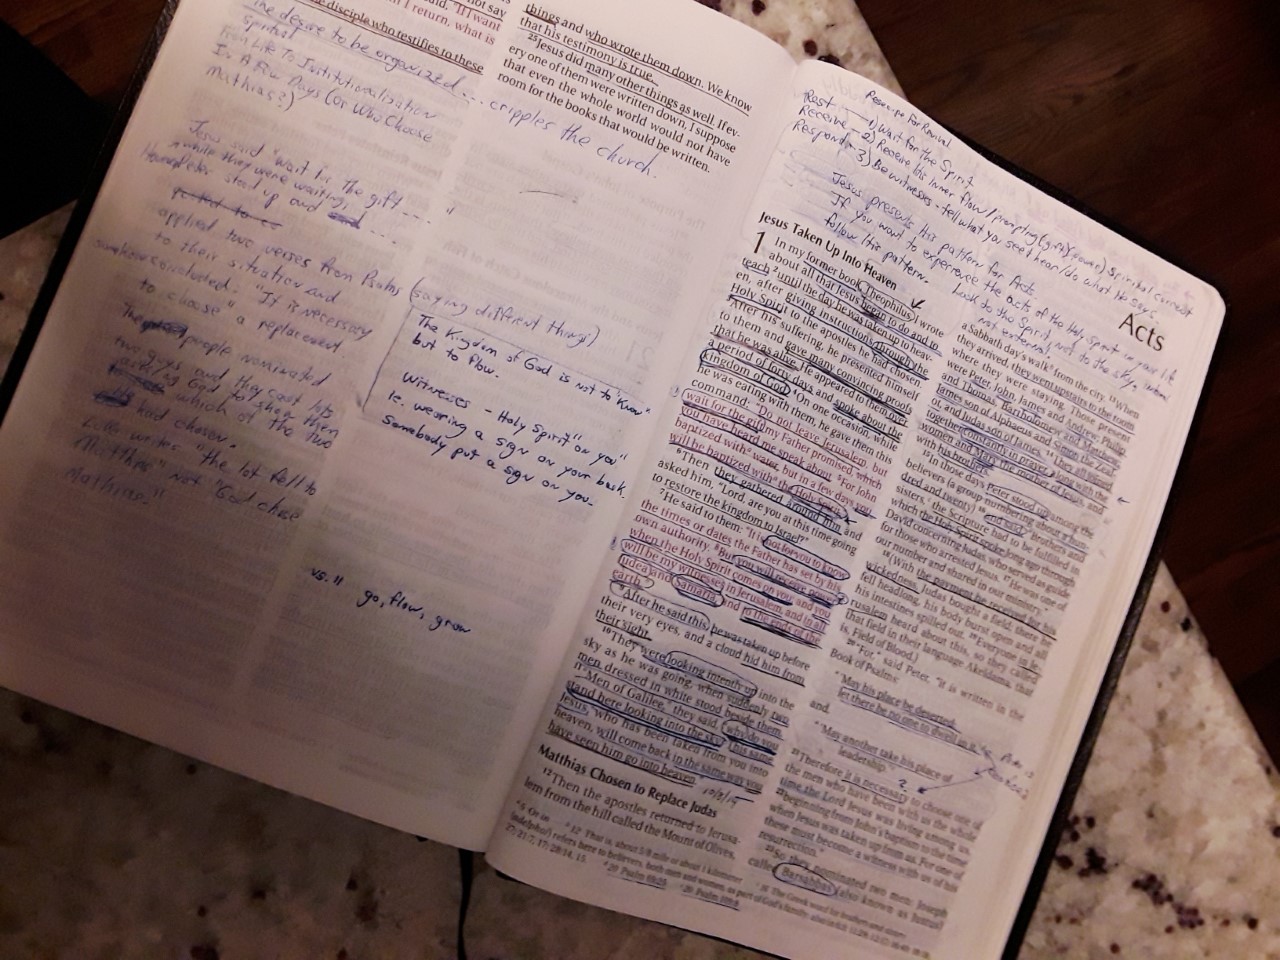 not say
did. "If I want
I return, what is
the disciple who testifies to these
things and who wrote them down. We know
that his testimony is true.
25 Jesus did many other things as well. If ev-
ery one of them were written down, I suppose
that even the whole world would not have
room for the books that would be written.
The desire to be organized... cripples the church.
Spiritual
From Life To Institutionalization
In A Few Days (or Who Choose
Mathias?)
Jesus said "wait for the gift....
while they were waiting,
Peter stood up and
applied two verses from Psalms (saying different things)
to their situation and
somehow concluded: "It is necessary
to choose" a replacement.
The people nominated
two guys and they cast lots
asking God to show them
which of the two
had chosen.
Luke writes "the lot fell to
Matthias" not "God chose
Mathias."
The Kingdom of God is not to "know"
but to flow.
Witnesses - Holy Spirit "on you"
ie. wearing a sign on your back.
Somebody put a sign on you.
vs. 11 go, flow, grow
For Revival
Rest 1) Wait for the Spirit
Receive 2) Receive His inner flow/prompting (gift) (power) Spiritual Current
Respond 3) Be witnesses - tell what you see + hear/do what He says.
Jesus presents His pattern for Acts.
If you want to experience the acts of the Holy Spirit in your life
follow His pattern. Look to the Spirit, not to the sky, internal
not external!
Acts
Jesus Taken Up Into Heaven
1 In my former book, Theophilus, I wrote
about all that Jesus began to do and to
teach 2 until the day he was taken up to heav-
en, after giving instructions through the
Holy Spirit to the apostles he had chosen.
3 After his suffering, he presented himself
to them and gave many convincing proofs
that he was alive. He appeared to them over
a period of forty days and spoke about the
kingdom of God. 4 On one occasion, while
he was eating with them, he gave them this
command: "Do not leave Jerusalem, but
wait for the gift my Father promised, which
you have heard me speak about. 5 For John
baptized with a water, but in a few days you
will be baptized with a the Holy Spirit."
6 Then they gathered around him and
asked him, "Lord, are you at this time going
to restore the kingdom to Israel?"
7 He said to them: "It is not for you to know
the times or dates the Father has set by his
own authority. 8 But you will receive power
when the Holy Spirit comes on you; and you
will be my witnesses in Jerusalem, and in all
Judea and Samaria, and to the ends of the
earth."
9 After he said this, he was taken up before
their very eyes, and a cloud hid him from
their sight.
10 They were looking intently up into the
sky as he was going, when suddenly two
men dressed in white stood beside them.
11 "Men of Galilee," they said, "why do you
stand here looking into the sky? This same
Jesus, who has been taken from you into
heaven, will come back in the same way you
have seen him go into heaven."
Matthias Chosen to Replace Judas
12 Then the apostles returned to Jerusa-
lem from the hill called the Mount of Olives,
a Sabbath day's walk from the city. 13 When
they arrived, they went upstairs to the room
where they were staying. Those present
were Peter, John, James and Andrew; Philip
and Thomas, Bartholomew and Matthew;
James son of Alphaeus and Simon the Zeal-
ot, and Judas son of James. 14 They all joined
together constantly in prayer, along with the
women and Mary the mother of Jesus, and
with his brothers.
15 In those days Peter stood up among the
believers (a group numbering about a hun-
dred and twenty) 16 and said, "Brothers and
sisters, the Scripture had to be fulfilled in
which the Holy Spirit spoke long ago through
David concerning Judas, who served as guide
for those who arrested Jesus. 17 He was one of
our number and shared in our ministry."
18 (With the payment he received for his
wickedness, Judas bought a field; there he
fell headlong, his body burst open and all
his intestines spilled out. 19 Everyone in Je-
rusalem heard about this, so they called
that field in their language Akeldama, that
is, Field of Blood.)
20 "For," said Peter, "it is written in the
Book of Psalms:
"'May his place be deserted;
let there be no one to dwell in it,'
and,
"'May another take his place of
leadership.'
21 Therefore it is necessary to choose one of
the men who have been with us the whole
time the Lord Jesus was living among us,
22 beginning from John's baptism to the time
when Jesus was taken up from us. For one of
these must become a witness with us of his
resurrection."
23 So they nominated two men: Joseph
called Barsabbas (also known as Justus)
a 5 Or in
12 That is, about 5/8 mile or about 1 kilometer
20 Psalm 69:25
20 Psalm 109:8